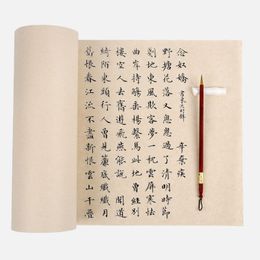 念奴嬌 書東流村壁 辛棄疾
野塘花落又怱怱過了清明時節
剗地東風欺客夢一枕雲屏寒怯
曲岸持觴垂楊繫馬此地曾輕別
樓空人去舊遊飛燕能說 聞道
綺陌東頭行人曾見簾底纖纖月
舊恨春江流不盡新恨雲山千疊